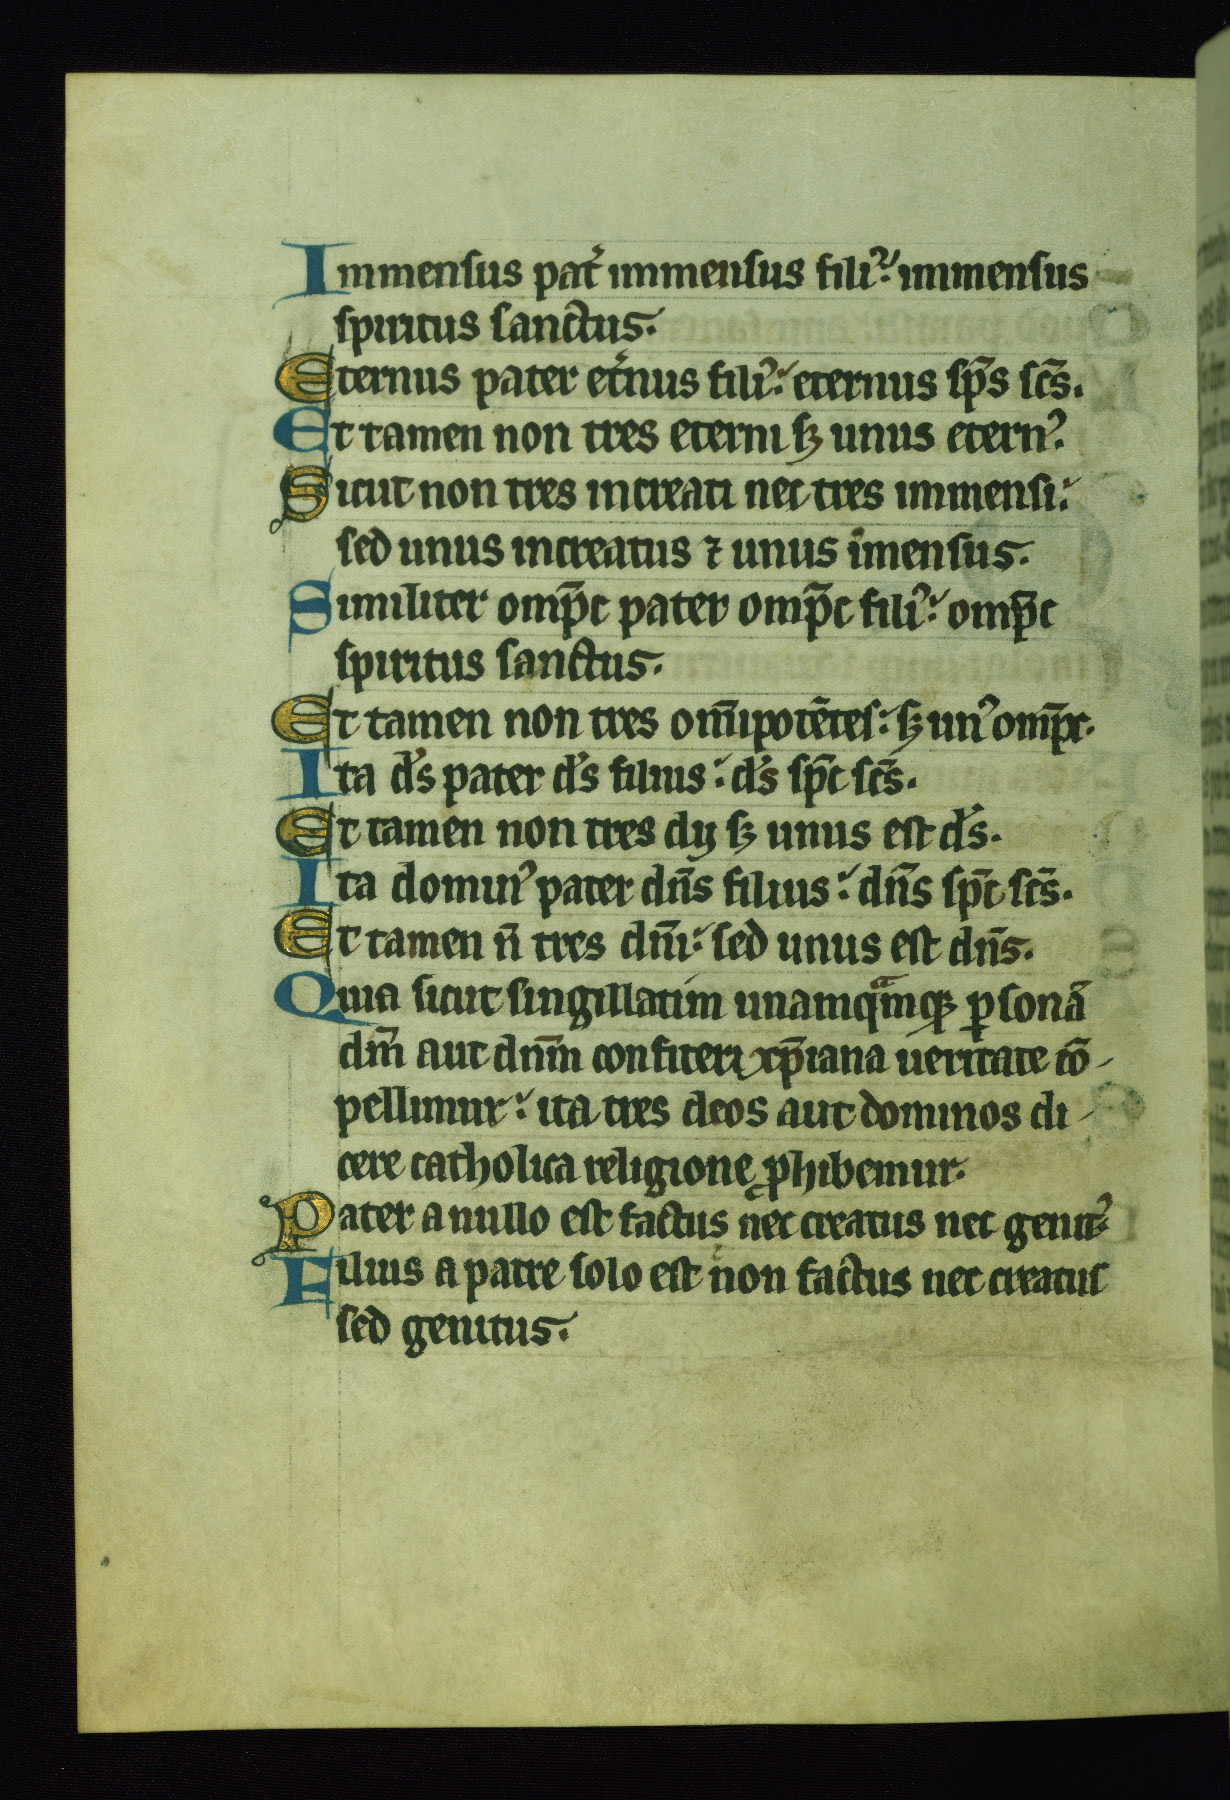 Immensus pat̾ immensus filiꝰ: immensus
spiritus sanctus.
Eternus pater et̾nus filiꝰ: eternus sp̄s sc̄s.
Et tamen non tres eterni sꝫ unus eternꝰ.
Sicut non tres increati nec tres immensi:
sed unus increatus ⁊ unus īmensus.
Similiter omp̄c pater omp̄c filiꝰ: omp̄c
spiritus sanctus.
Et tamen non tres om̄ipotētes: sꝫ unꝰ omp̄c.
Ita d̄s pater d̄s filius: d̄s sp̄c sc̄s.
Et tamen non tres dij sꝫ unus est d̄s.
Ita dominꝰ pater dn̄s filius: dn̄s sp̄c sc̄s.
Et tamen n̄ tres dn̄i: sed unus est dn̄s.
Quia sicut singillatim unamqᵃmqꝫ ꝑsonā
dm̄ aut dnm̄ confiteri xp̄iana ueritate cō-
pellimur: ita tres deos aut dominos di-
cere catholica religione ꝓhibemur.
Pater a nullo est factus nec creatus nec genitꝰ
Filius a patre solo est non factus nec creatus
sed genitus.